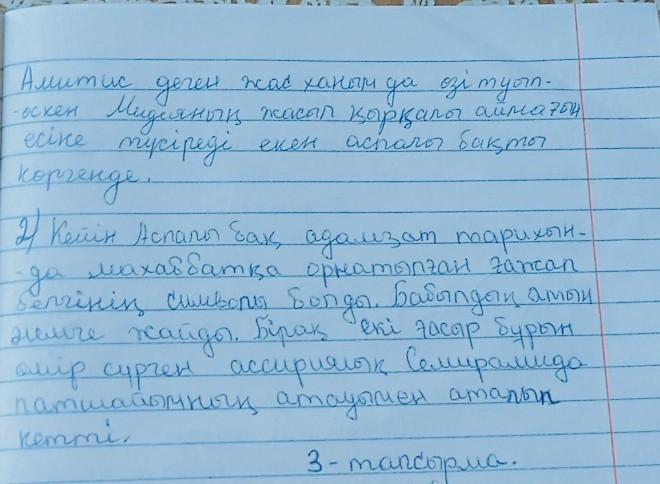 Амитис деген жас ханым да өзі туып-
-өскен Мидияның жасыл қырқалы аймағын
есіне түсіреді екен аспалы бақты
көргенде.
2) Кейін Аспалы бақ адамзат тарихын-
-да махаббатқа орнатылған ғажап
белгінің символы болды. Бабылдың атын
әлемге жайды. Бірақ екі ғасыр бұрын
өмір сүрген ассириялық Семирамида
патшайымның атауымен аталып
кетті.
3-тапсырма.